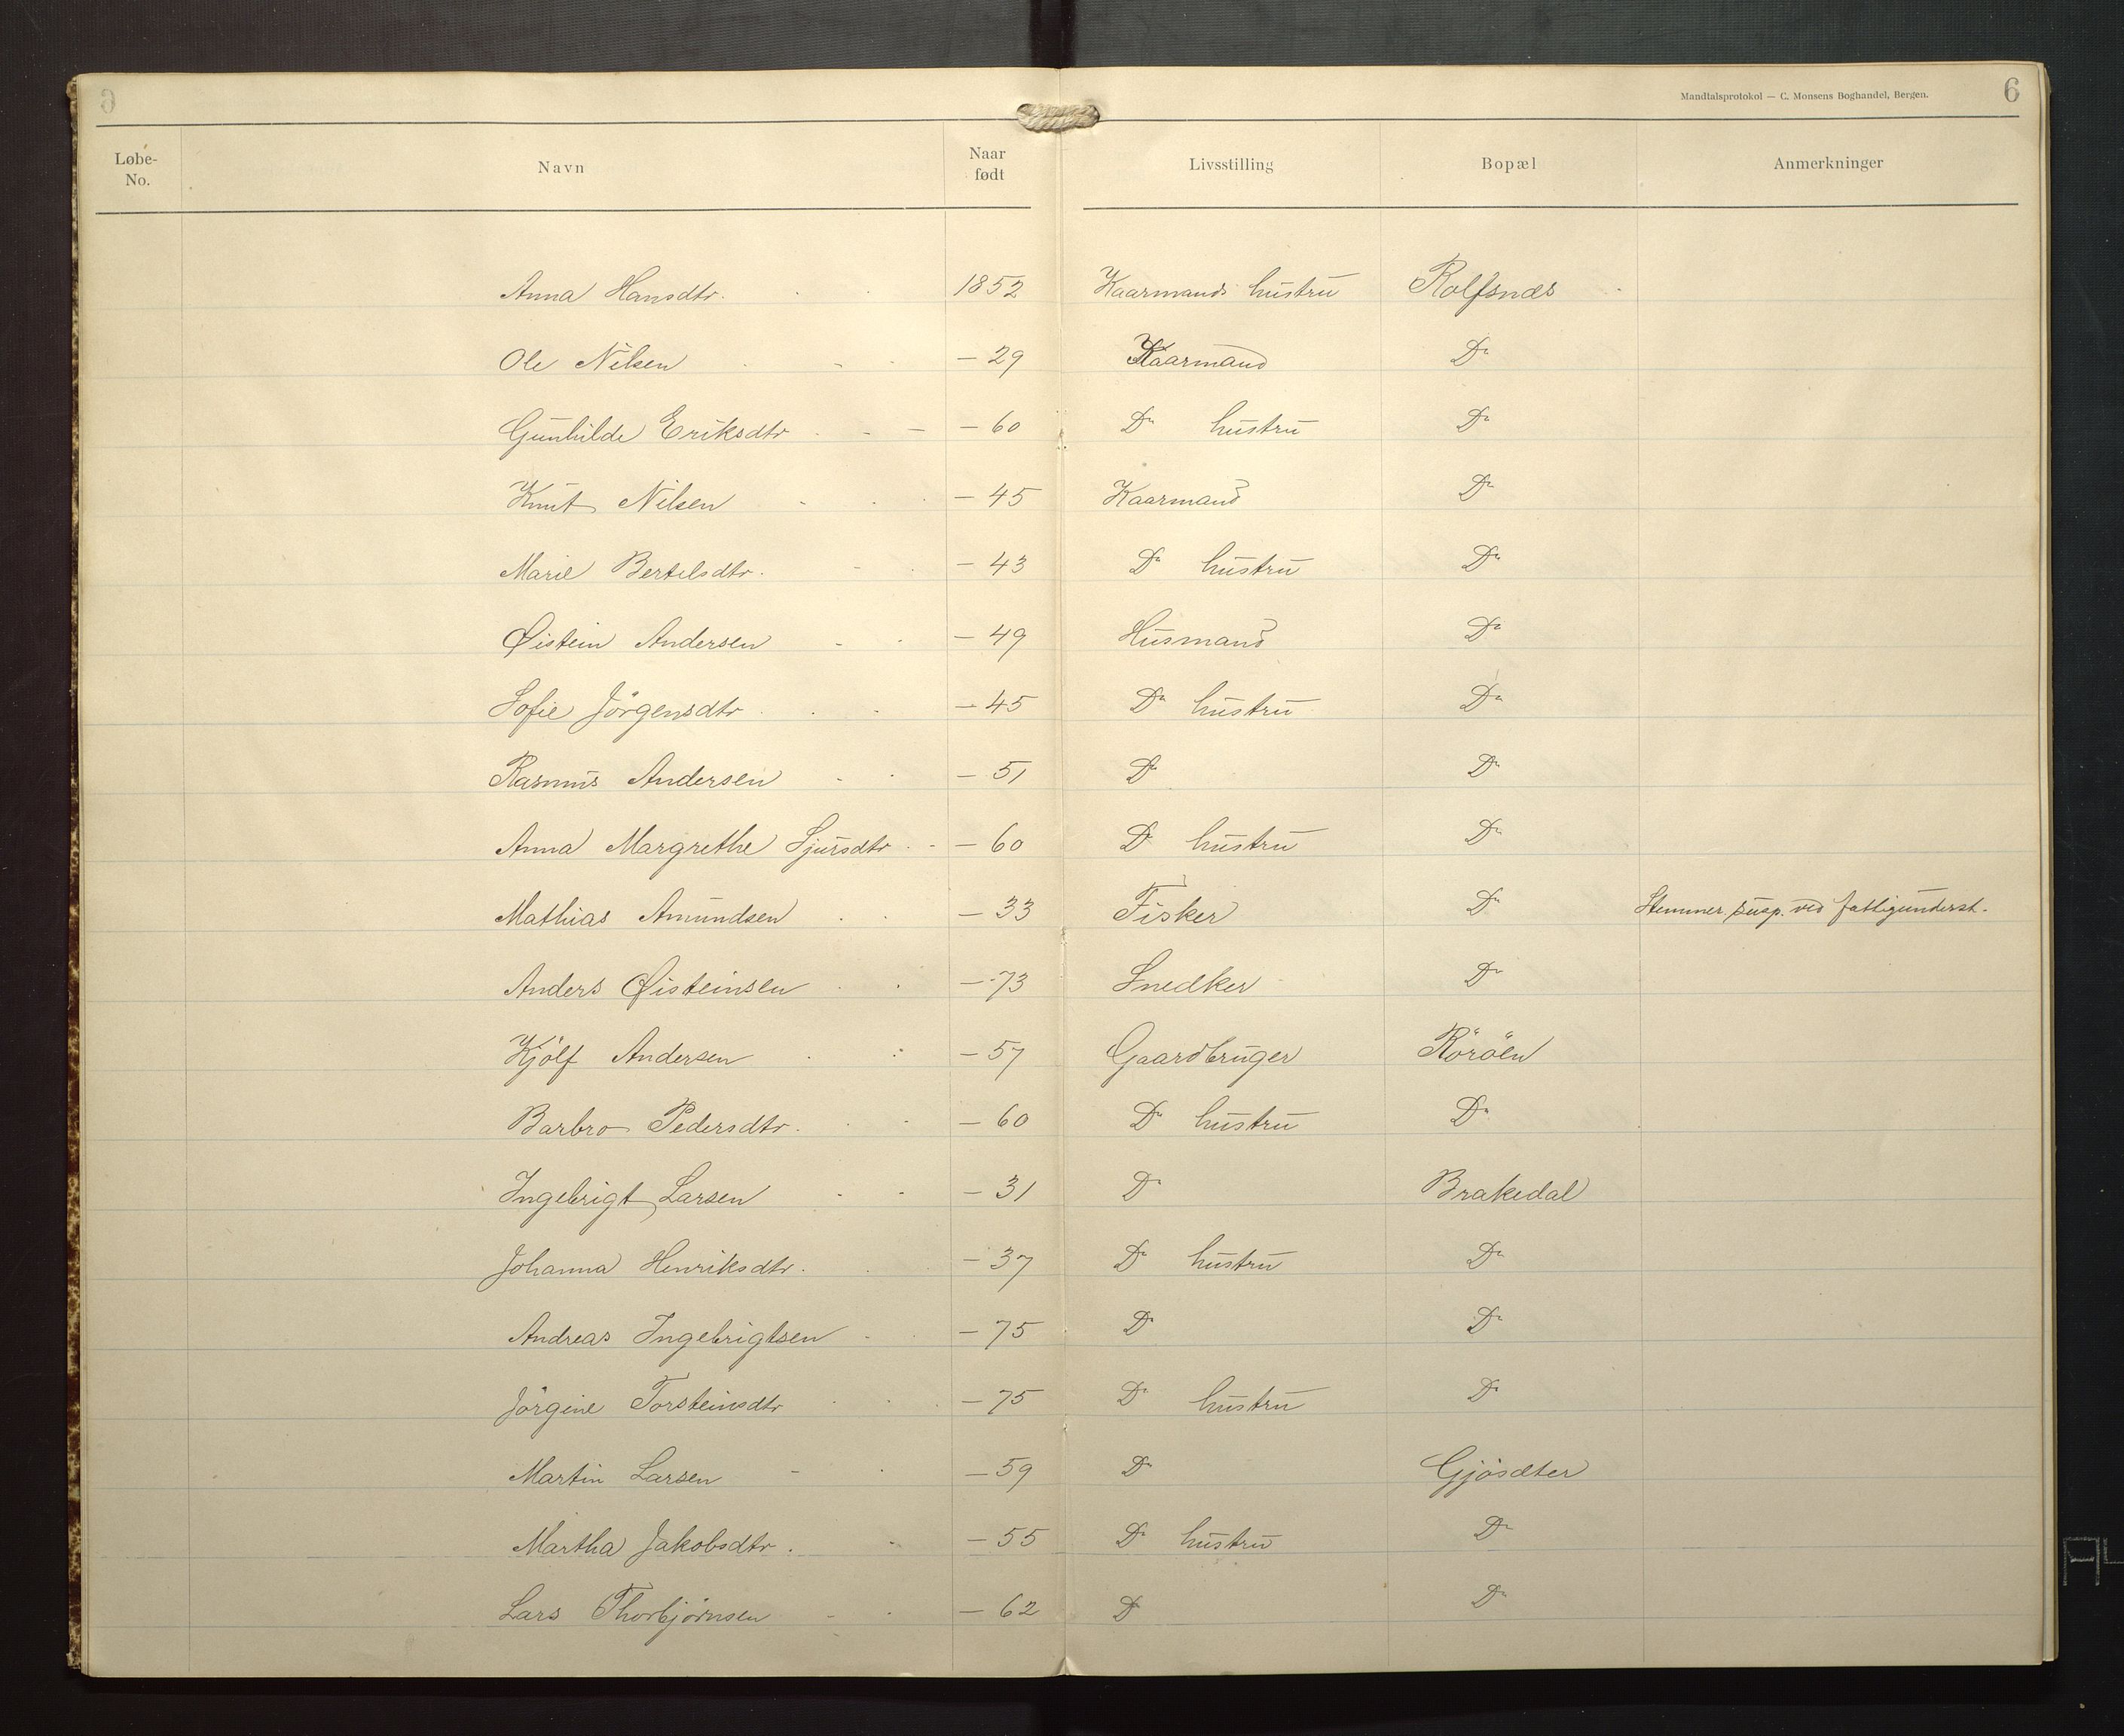 6
Mandtalsprotokol — C. Monsens Boghandel, Bergen.
Løbe-No. Navn Naar født Livsstilling Bopæl Anmerkninger
Anna Hansdtr. 1852 Kaarmands hustru Rolfsnæs
Ole Nilsen — 29 Kaarmand Do
Gunhilde Eriksdtr — 60 Do hustru Do
Knut Nilsen — 45 Kaarmand Do
Marie Bertelsdtr. — 43 Do hustru Do
Øistein Andersen — 49 Husmand Do
Sofie Jörgensdtr — 45 Do hustru Do
Rasmus Andersen — 51 Do Do
Anna Margrethe Sjursdtr — 60 Do hustru Do
Mathias Amundsen — 33 Fisker Do Stemmer. susp. ved fattigunderst.
Anders Øisteinsen — 73 Snedker Do
Kjölf Andersen — 57 Gaardbruger Röröen
Barbro Pedersdtr. — 60 Do hustru Do
Ingebrigt Larsen — 31 Do Brakedal
Johanna Henriksdtr. — 37 Do hustru Do
Andreas Ingebrigtsen — 75 Do Do
Jörgine Torsteinsdtr — 75 Do hustru Do
Martin Larsen — 59 Do Gjösæter
Martha Jakobsdtr. — 55 Do hustru Do
Lars Thorbjörnsen — 62 Do Do